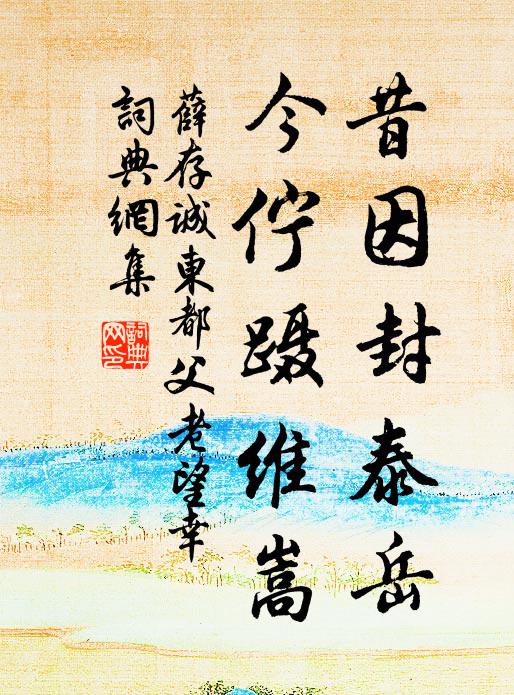 昔因封泰岳
今佇蹑維嵩
薛存诚東都父老望幸
詞典網集
詞典网印